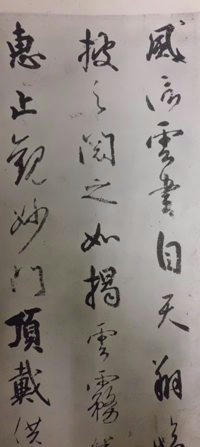 風信雲書自天翔臨
披之閱之如揭雲霧
惠止觀妙門頂戴供